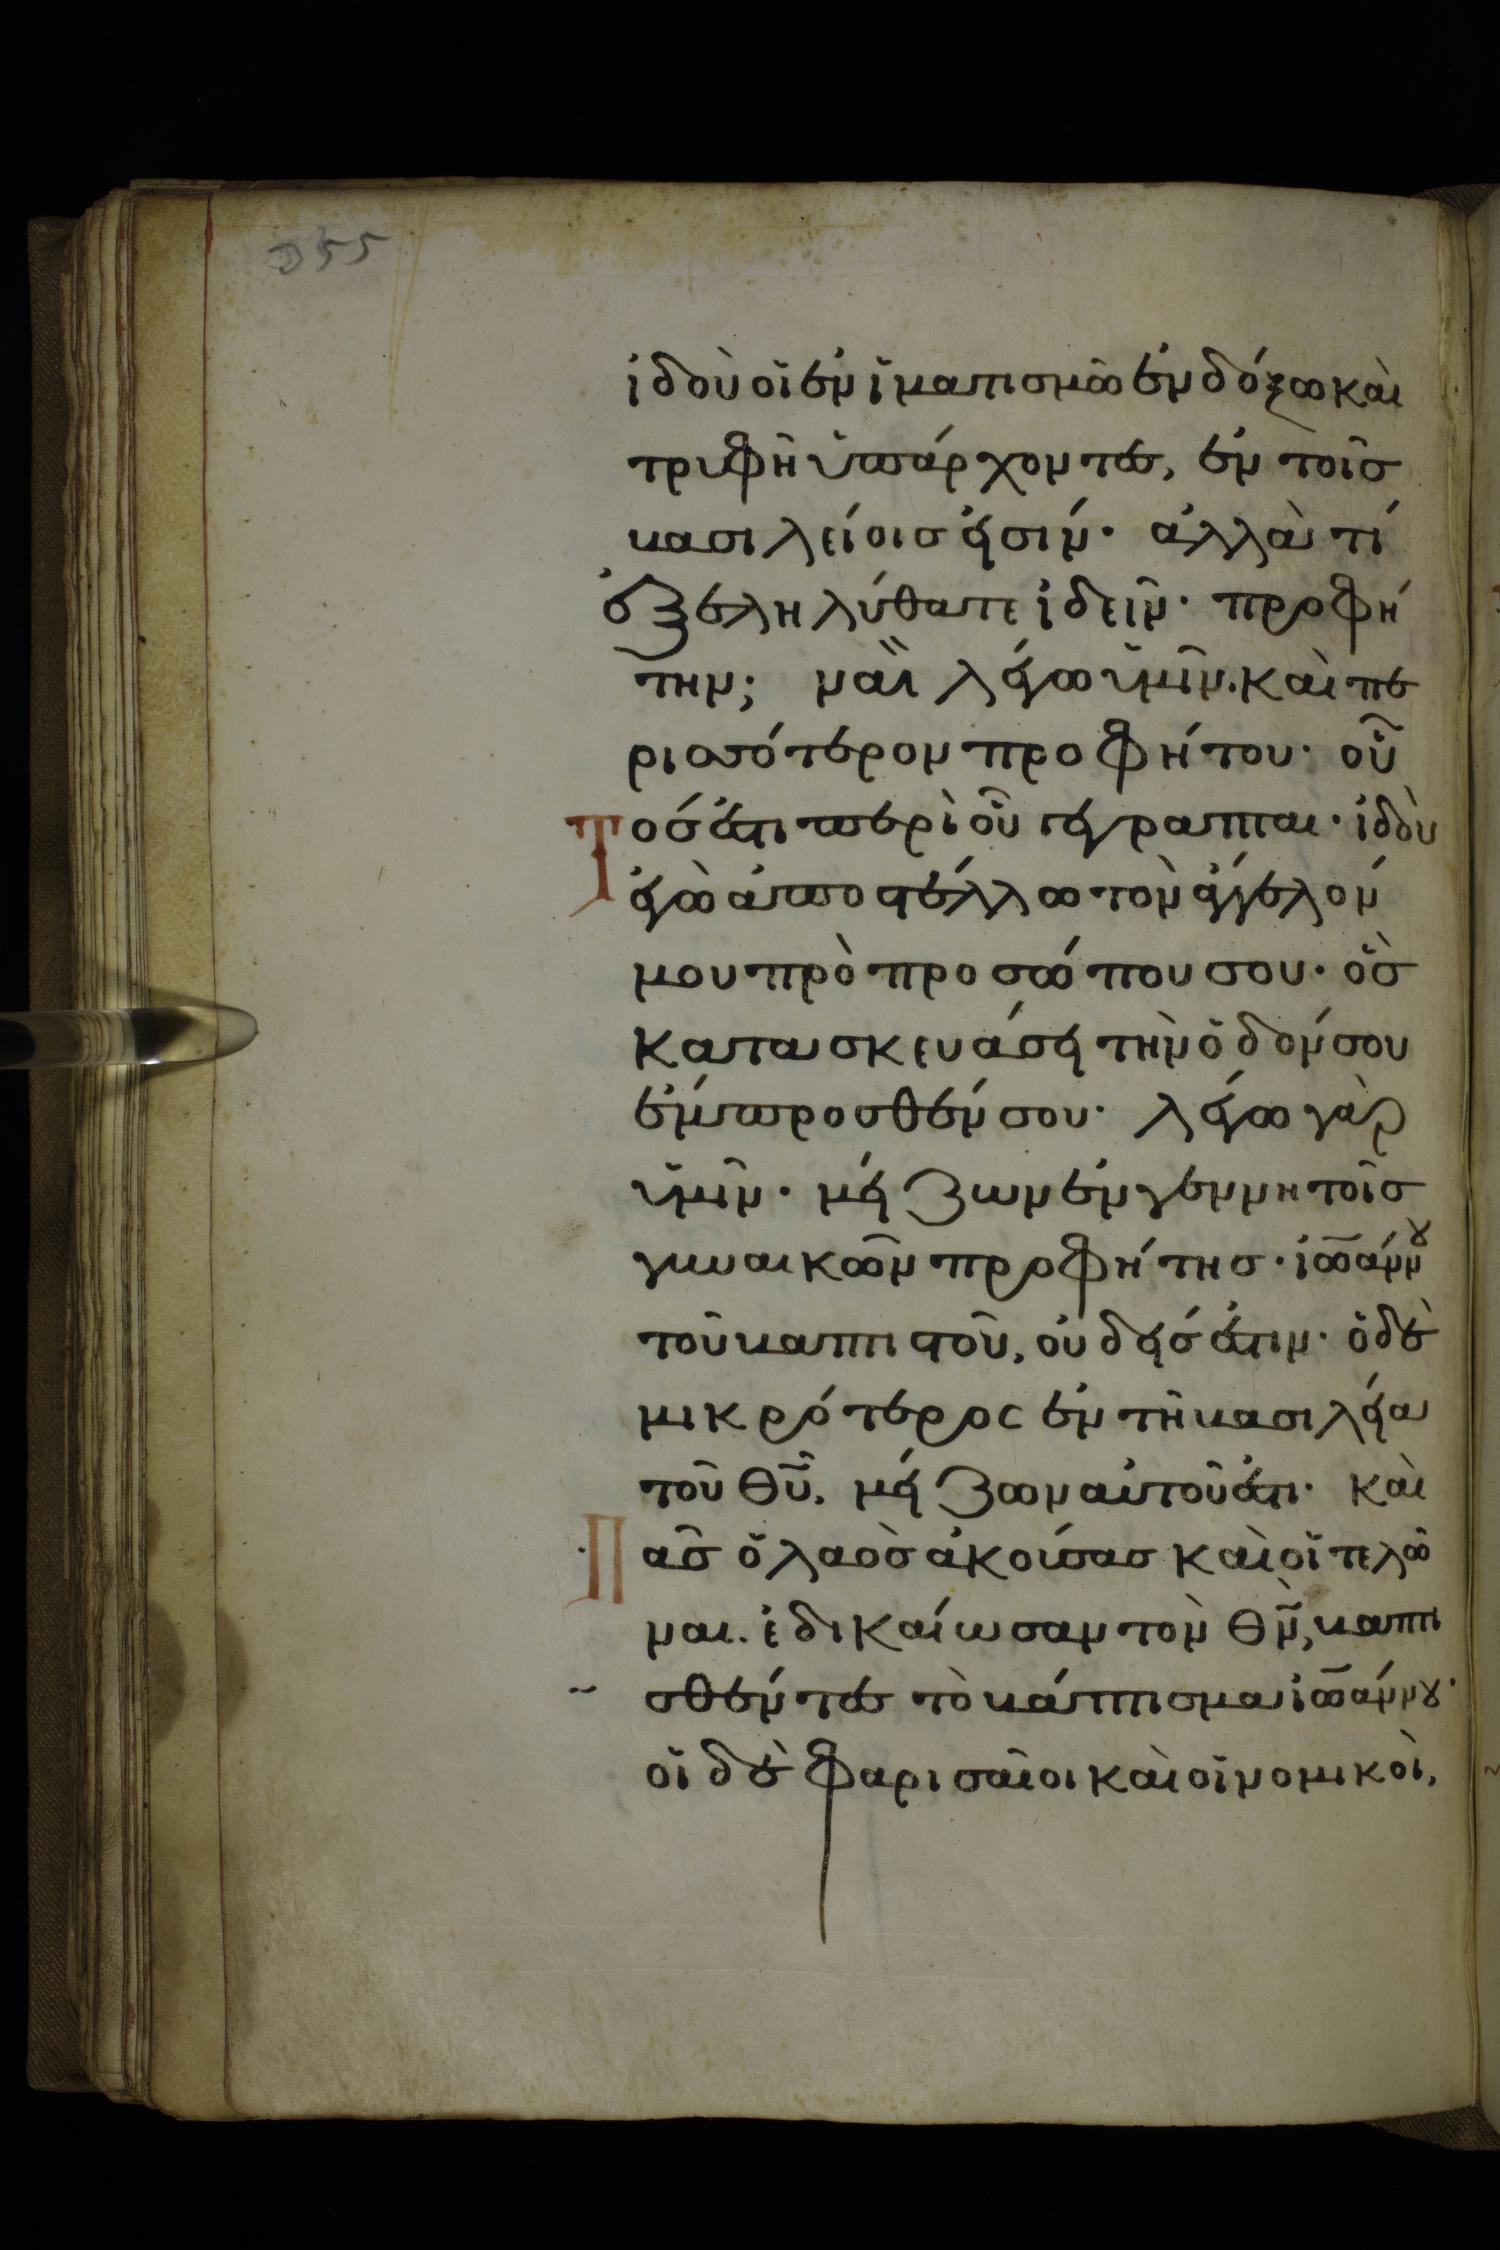 ἰδοὺ οἱ ἐν ἱματισμῶ ἐνδόξω καὶ
τρυφῆ ὑπάρχοντες, ἐν τοῖσ
βασιλείοισ εἰσίν· ἀλλὰ τί
ἐξεληλύθατε ἰδεῖν· προφή
την; ναὶ λέγω ὑμῖν. καὶ πε
ρισσότερον προφήτου· οὗ
τοσ ἐστι περὶ οὗ γέγραπται· ἰδοὺ
ἐγὼ ἀποστέλλω τὸν ἄγγελόν
μου πρὸ προσώπου σου· ὃσ
κατασκευάσει τὴν ὁδόν σου
ἔμπροσθέν σου· λέγω γὰρ
ὑμῖν· μείζων ἐν γεννητοῖσ
γυναικῶν προφήτησ· ἰωάννου
τοῦ βαπτιστοῦ, οὐδείσ ἐστιν· ὁ δὲ
μικρότερος ἐν τῆ βασιλεία
τοῦ θῦ, μείζων αὐτοῦ ἐστι· καὶ
Πᾶσ ὁ λαὸσ ἀκούσασ καὶ οἱ τελῶ
ναι. ἐδικαίωσαν τὸν θν, βαπτι
σθέντες τὸ βάπτισμα ἰωάννου·
οἱ δὲ φαρισαῖοι καὶ οἱ νομικοὶ,